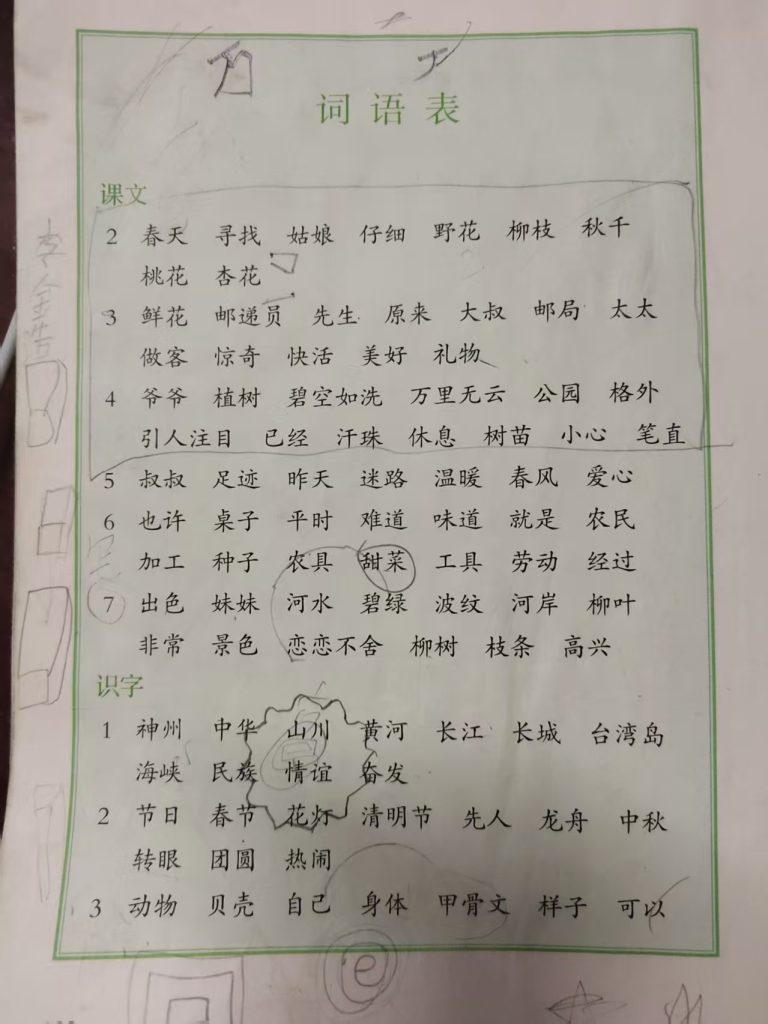 词语表
课文
2 春天 寻找 姑娘 仔细 野花 柳枝 秋千
桃花 杏花
3 鲜花 邮递员 先生 原来 大叔 邮局 太太
做客 惊奇 快活 美好 礼物
4 爷爷 植树 碧空如洗 万里无云 公园 格外
引人注目 已经 汗珠 休息 树苗 小心 笔直
5 叔叔 足迹 昨天 迷路 温暖 春风 爱心
6 也许 桌子 平时 难道 味道 就是 农民
加工 种子 农具 甜菜 工具 劳动 经过
7 出色 妹妹 河水 碧绿 波纹 河岸 柳叶
非常 景色 恋恋不舍 柳树 枝条 高兴
识字
1 神州 中华 山川 黄河 长江 长城 台湾岛
海峡 民族 情谊 奋发
2 节日 春节 花灯 清明节 先人 龙舟 中秋
转眼 团圆 热闹
3 动物 贝壳 自己 身体 甲骨文 样子 可以
e